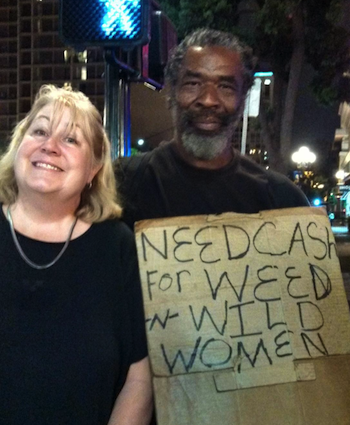 NEED CASH
FOR WEED
-N- WILD
WOMEN